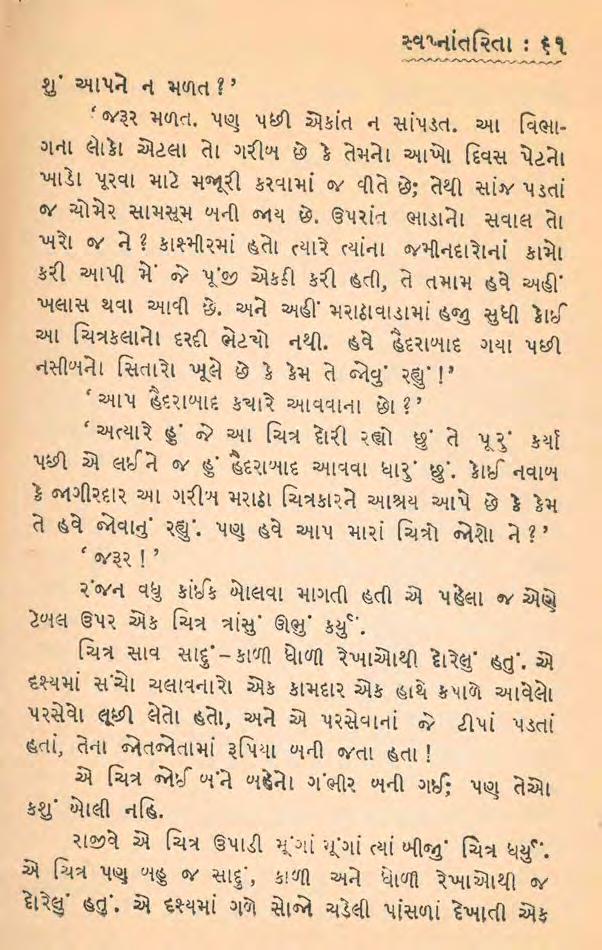 સ્વપ્નાંતરિતા : ૬૧
શું આપને ન મળત ? ’
‘ જરૂર મળત. પણ પછી એકાંત ન સાંપડત. આ વિભા-
ગના લોકો એટલા તો ગરીબ છે કે તેમનો આખો દિવસ પેટનો
ખાડો પૂરવા માટે મજૂરી કરવામાં જ વીતે છે; તેથી સાંજ પડતાં
જ ચોમેર સામસૂમ બની જાય છે. ઉપરાંત ભાડાનો સવાલ તો
ખરો જ ને ? કાશ્મીરમાં હતો ત્યારે ત્યાંના જમીનદારોનાં કામો
કરી આપી મેં જે પૂંજી એકઠી કરી હતી, તે તમામ હવે અહીં
ખલાસ થવા આવી છે. અને અહીં મરાઠાવાડામાં હજી સુધી કોઈ
આ ચિત્રકલાનો દરદી ભેટયો નથી. હવે હૈદરાબાદ ગયા પછી
નસીબનો સિતારો ખૂલે છે કે કેમ તે જોવું રહ્યું ! ’
‘ આપ હૈદરાબાદ કયારે આવવાના છો ? ’
‘ અત્યારે હું જે આ ચિત્ર દોરી રહ્યો છું તે પૂરું કર્યા
પછી એ લઈને જ હું હૈદરાબાદ આવવા ધારું છું. કોઈ નવાબ
કે જાગીરદાર આ ગરીબ મરાઠા ચિત્રકારને આશ્રય આપે છે કે કેમ
તે હવે જોવાનું રહ્યું. પણ હવે આપ મારાં ચિત્રો જોશો ને ? ’
‘ જરૂર ! ’
રંજન વધુ કાંઈક બોલવા માગતી હતી એ પહેલા જ એણે
ટેબલ ઉપર એક ચિત્ર ત્રાંસું ઊભું કર્યું.
ચિત્ર સાવ સાદું – કાળી ધોળી રેખાઓથી દોરેલું હતું. એ
દશ્યમાં સંચો ચલાવનારો એક કામદાર એક હાથે કપાળે આવેલો
પરસેવો લૂછી લેતો હતો, અને એ પરસેવાનાં જે ટીપાં પડતાં
હતાં, તેના જોતજોતામાં રૂપિયા બની જતા હતા !
એ ચિત્ર જોઈ બંને બહેનો ગંભીર બની ગઈ; પણ તેઓ
કશું બોલી નહિ.
રાજીવે એ ચિત્ર ઉપાડી મૂંગાં મૂંગાં ત્યાં બીજું ચિત્ર ધર્યું.
એ ચિત્ર પણ બહુ જ સાદું, કાળી અને ધોળી રેખાઓથી જ
દોરેલું હતું. એ દશ્યમાં ગળે સોજો ચડેલી પાંસળાં દેખાતી એક